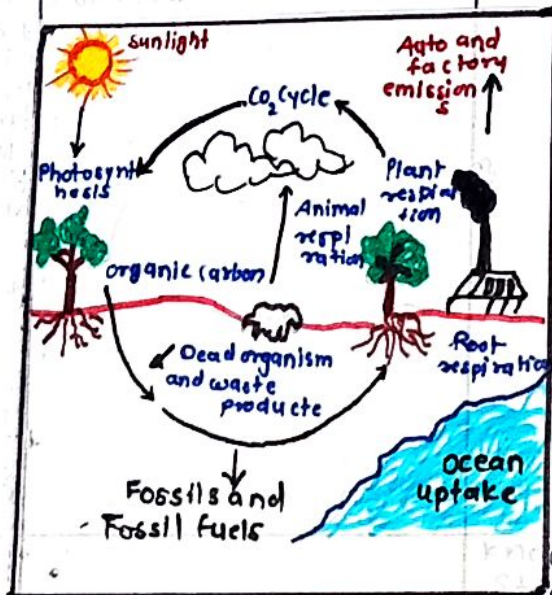 sunlight
Auto and
factory
emission
s
CO₂ cycle
Photosynt
hesis
Plant
respira
tion
Animal
respi
ration
organic carbon
Dead organism
and waste
producte
Root
respiration
ocean
uptake
Fossils and
Fossil fuels